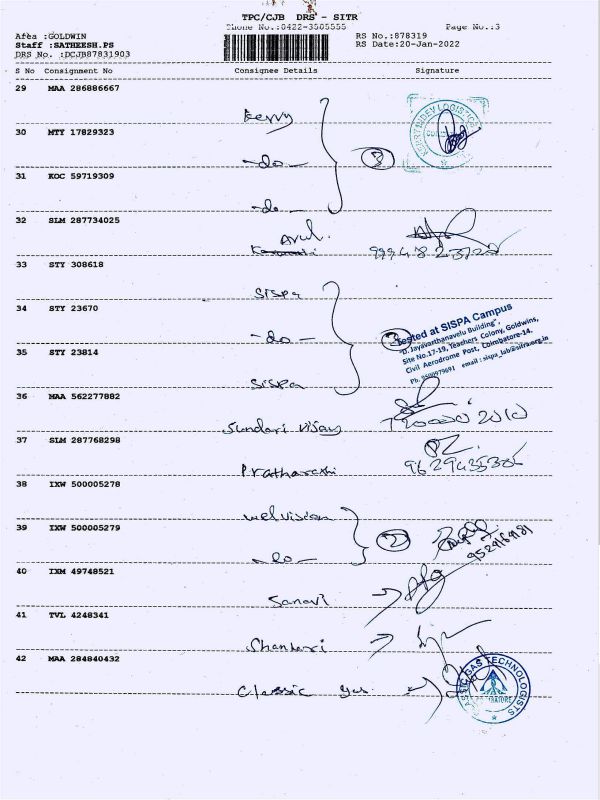 TPC/CJB DRS - SITR
Phone No.:0422-3505555 Page No.:3
Area :GOLDWIN RS No.:878319
Staff :SATHEESH.PS RS Date:20-Jan-2022
DRS No. :DCJB87831903
S No Consignment No Consignee Details Signature
29 MAA 286886667
Kerry
30 MTY 17829323
-do- 3
31 KOC 59719309
-do-
32 SLM 287734025
Arul.
33 STY 308618
Sispa
34 STY 23670
-do- 3
Tested at SISPA Campus
"D. Jayavanthanavelu Building",
Site No.17-19, Teachers Colony, Goldwins,
Civil Aerodrome Post, Coimbatore-14.
email : sispa_lab@sitra.org.in
35 STY 23814
Sispa
36 MAA 562277882
Sundari Vijay
37 SLM 287768298
38 IXW 500005278
Welvision
39 IXW 500005279
-do- 2
40 IXM 49748521
Sanavi
41 TVL 4248341
Shankari
42 MAA 284840432
Classic gas
CLASSIC GAS TECHNOLOGISTS